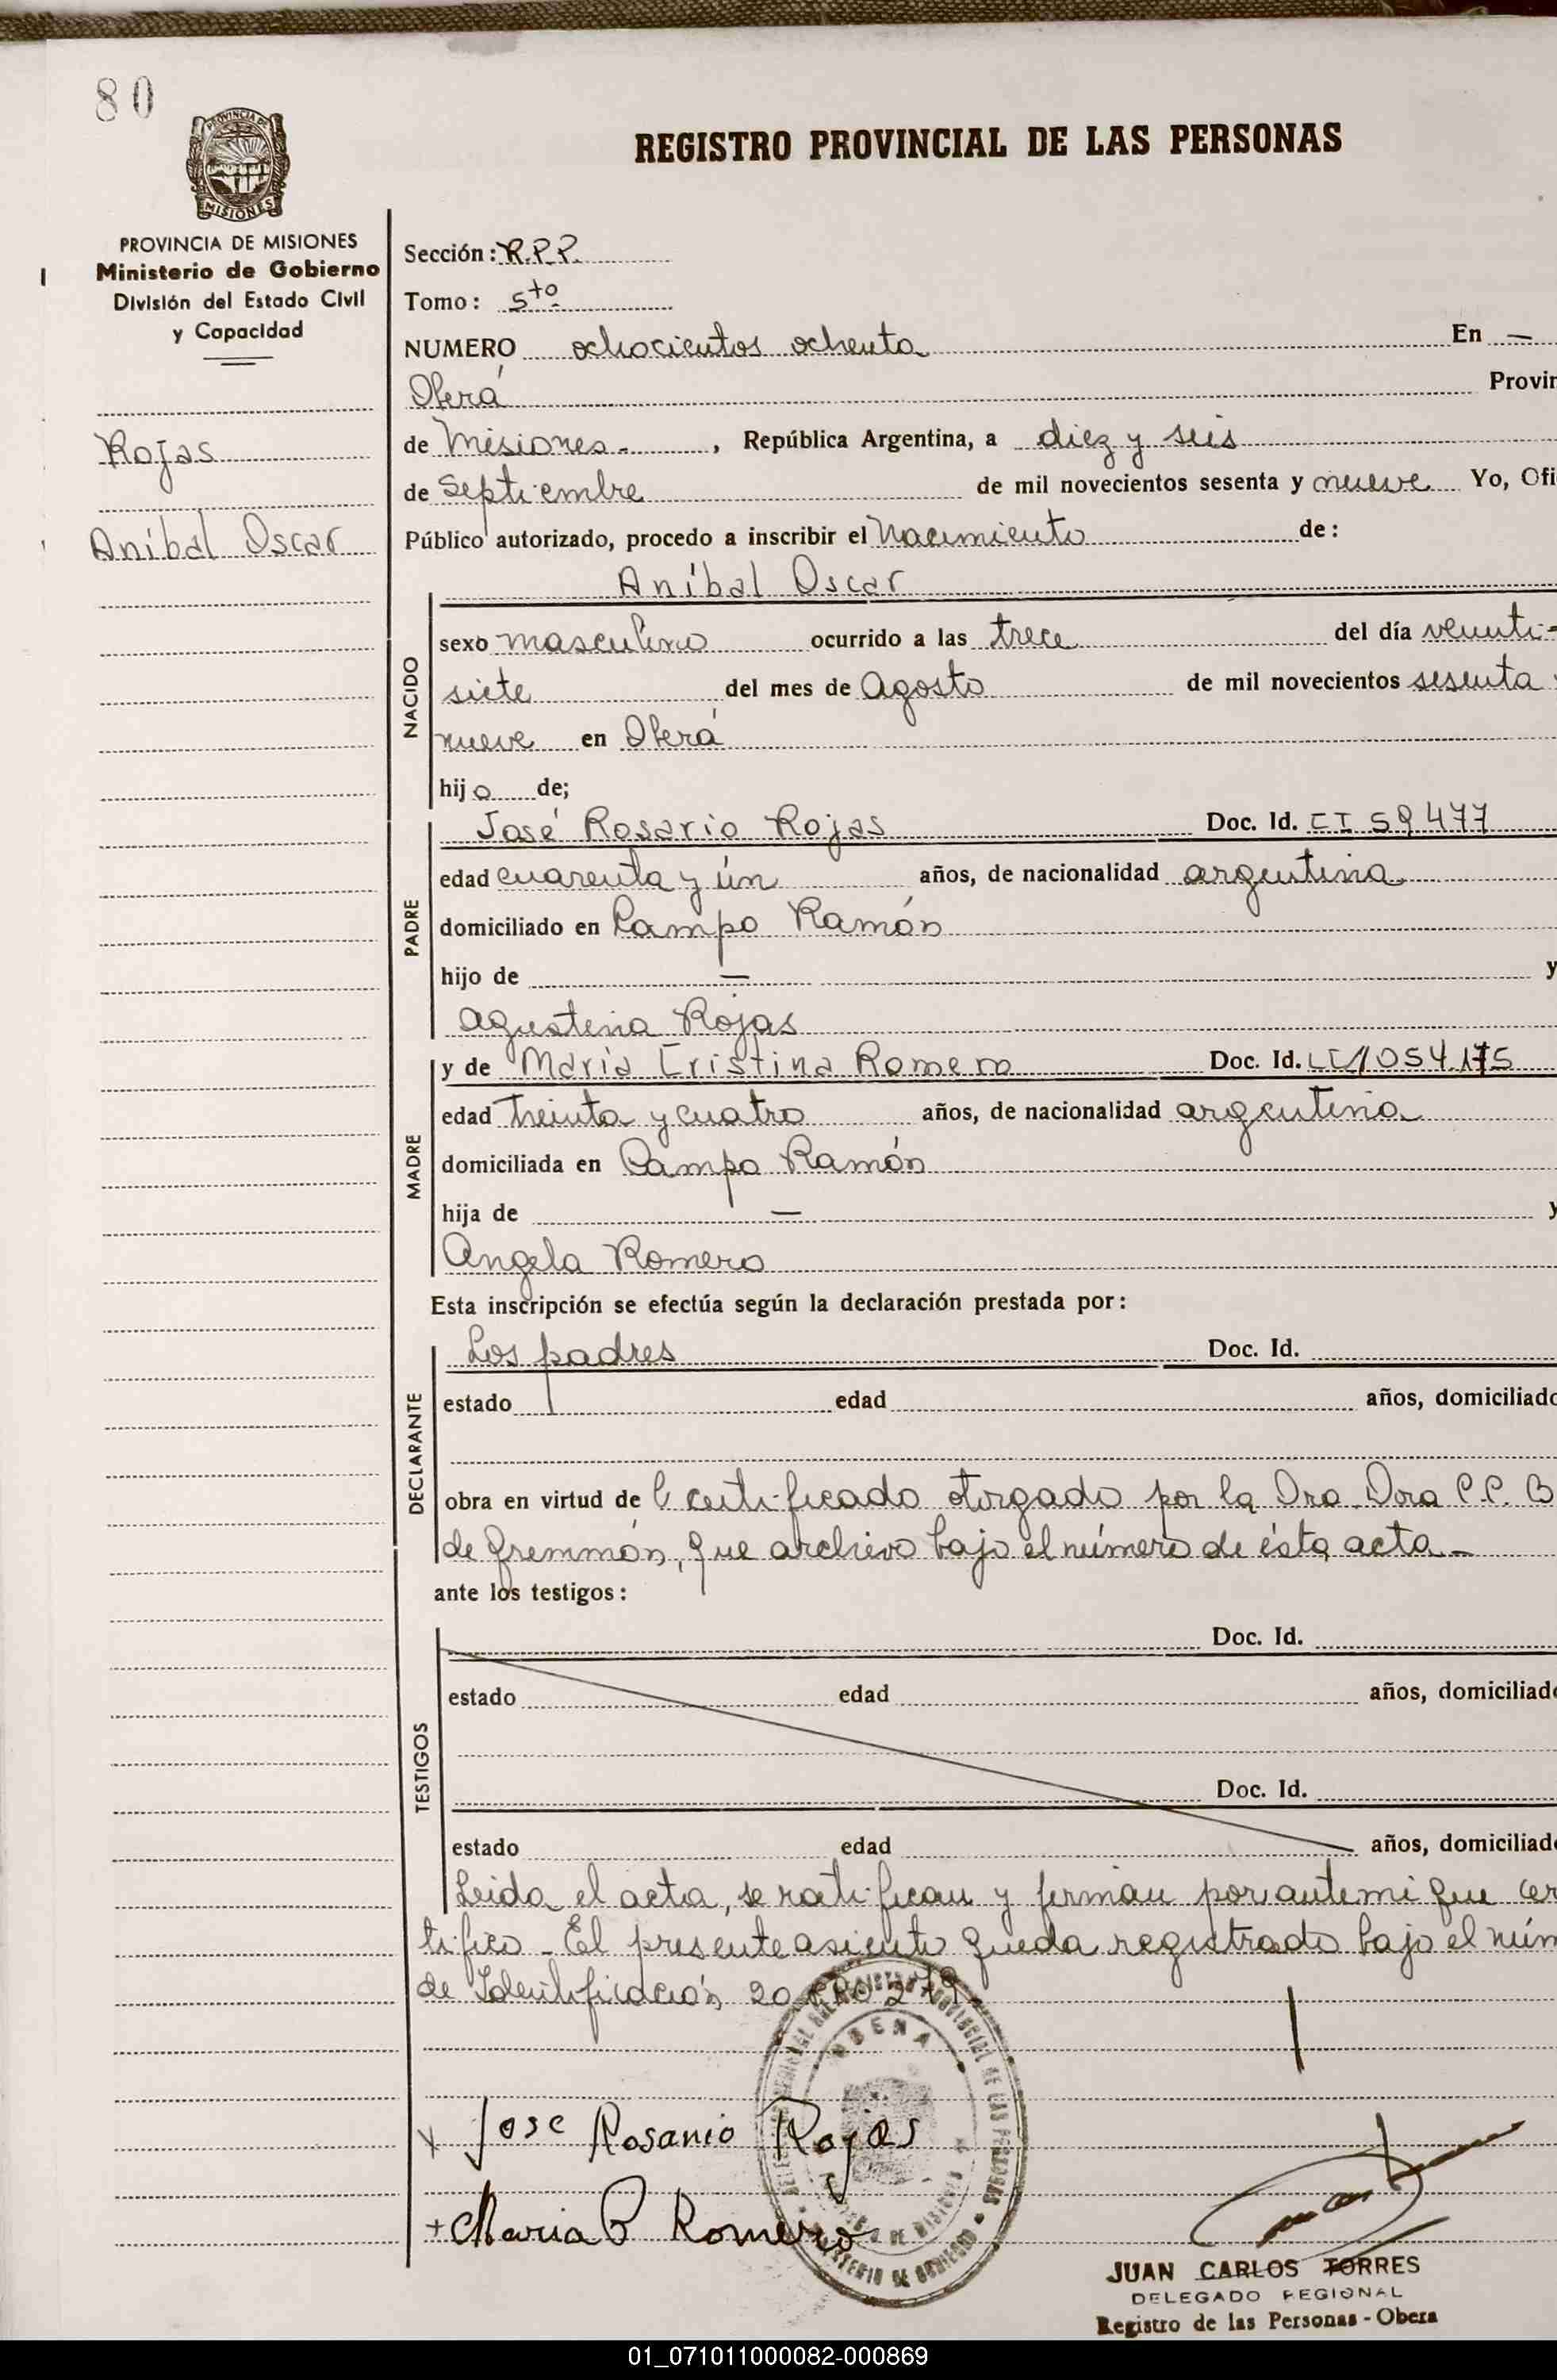 80
PROVINCIA DE
MISIONES
REGISTRO PROVINCIAL DE LAS PERSONAS
PROVINCIA DE MISIONES
Ministerio de Gobierno
División del Estado Civil
y Capacidad
Rojas
Aníbal Oscar
Sección: R.P.P.
Tomo: 5to
NUMERO ochocientos ochenta En —
Oberá Provin
de Misiones- , República Argentina, a diez y seis
de Septiembre de mil novecientos sesenta y nueve Yo, Ofi
Público autorizado, procedo a inscribir el Nacimiento de:
Aníbal Oscar
NACIDO
sexo masculino ocurrido a las trece del día veinti-
siete del mes de Agosto de mil novecientos sesenta y
nueve en Oberá
hijo de;
PADRE
José Rosario Rojas Doc. Id. CI 59477
edad cuarenta y ún años, de nacionalidad argentina
domiciliado en Campo Ramón
hijo de — y
Agustina Rojas
MADRE
y de María Cristina Romero Doc. Id. LC 1054.175
edad treinta y cuatro años, de nacionalidad argentina
domiciliada en Campo Ramón
hija de — y
Angela Romero
Esta inscripción se efectúa según la declaración prestada por:
DECLARANTE
Los padres Doc. Id.
estado edad años, domiciliado
obra en virtud de l certificado otorgado por la Dra. Dora C.P. B
de Gremmón, que archivo bajo el número de ésta acta-
ante los testigos:
TESTIGOS
Doc. Id.
estado edad años, domiciliado
Doc. Id.
estado edad años, domiciliado
Leida el acta, se ratifican y firman por ante mi que cer
tifico - El presente asiento queda registrado bajo el núm
de Identificación 20
OBERA
+ Jose Rosario Rojas
+ Maria C Romero
JUAN CARLOS TORRES
DELEGADO REGIONAL
Registro de las Personas - Obera
01_071011000082-000869